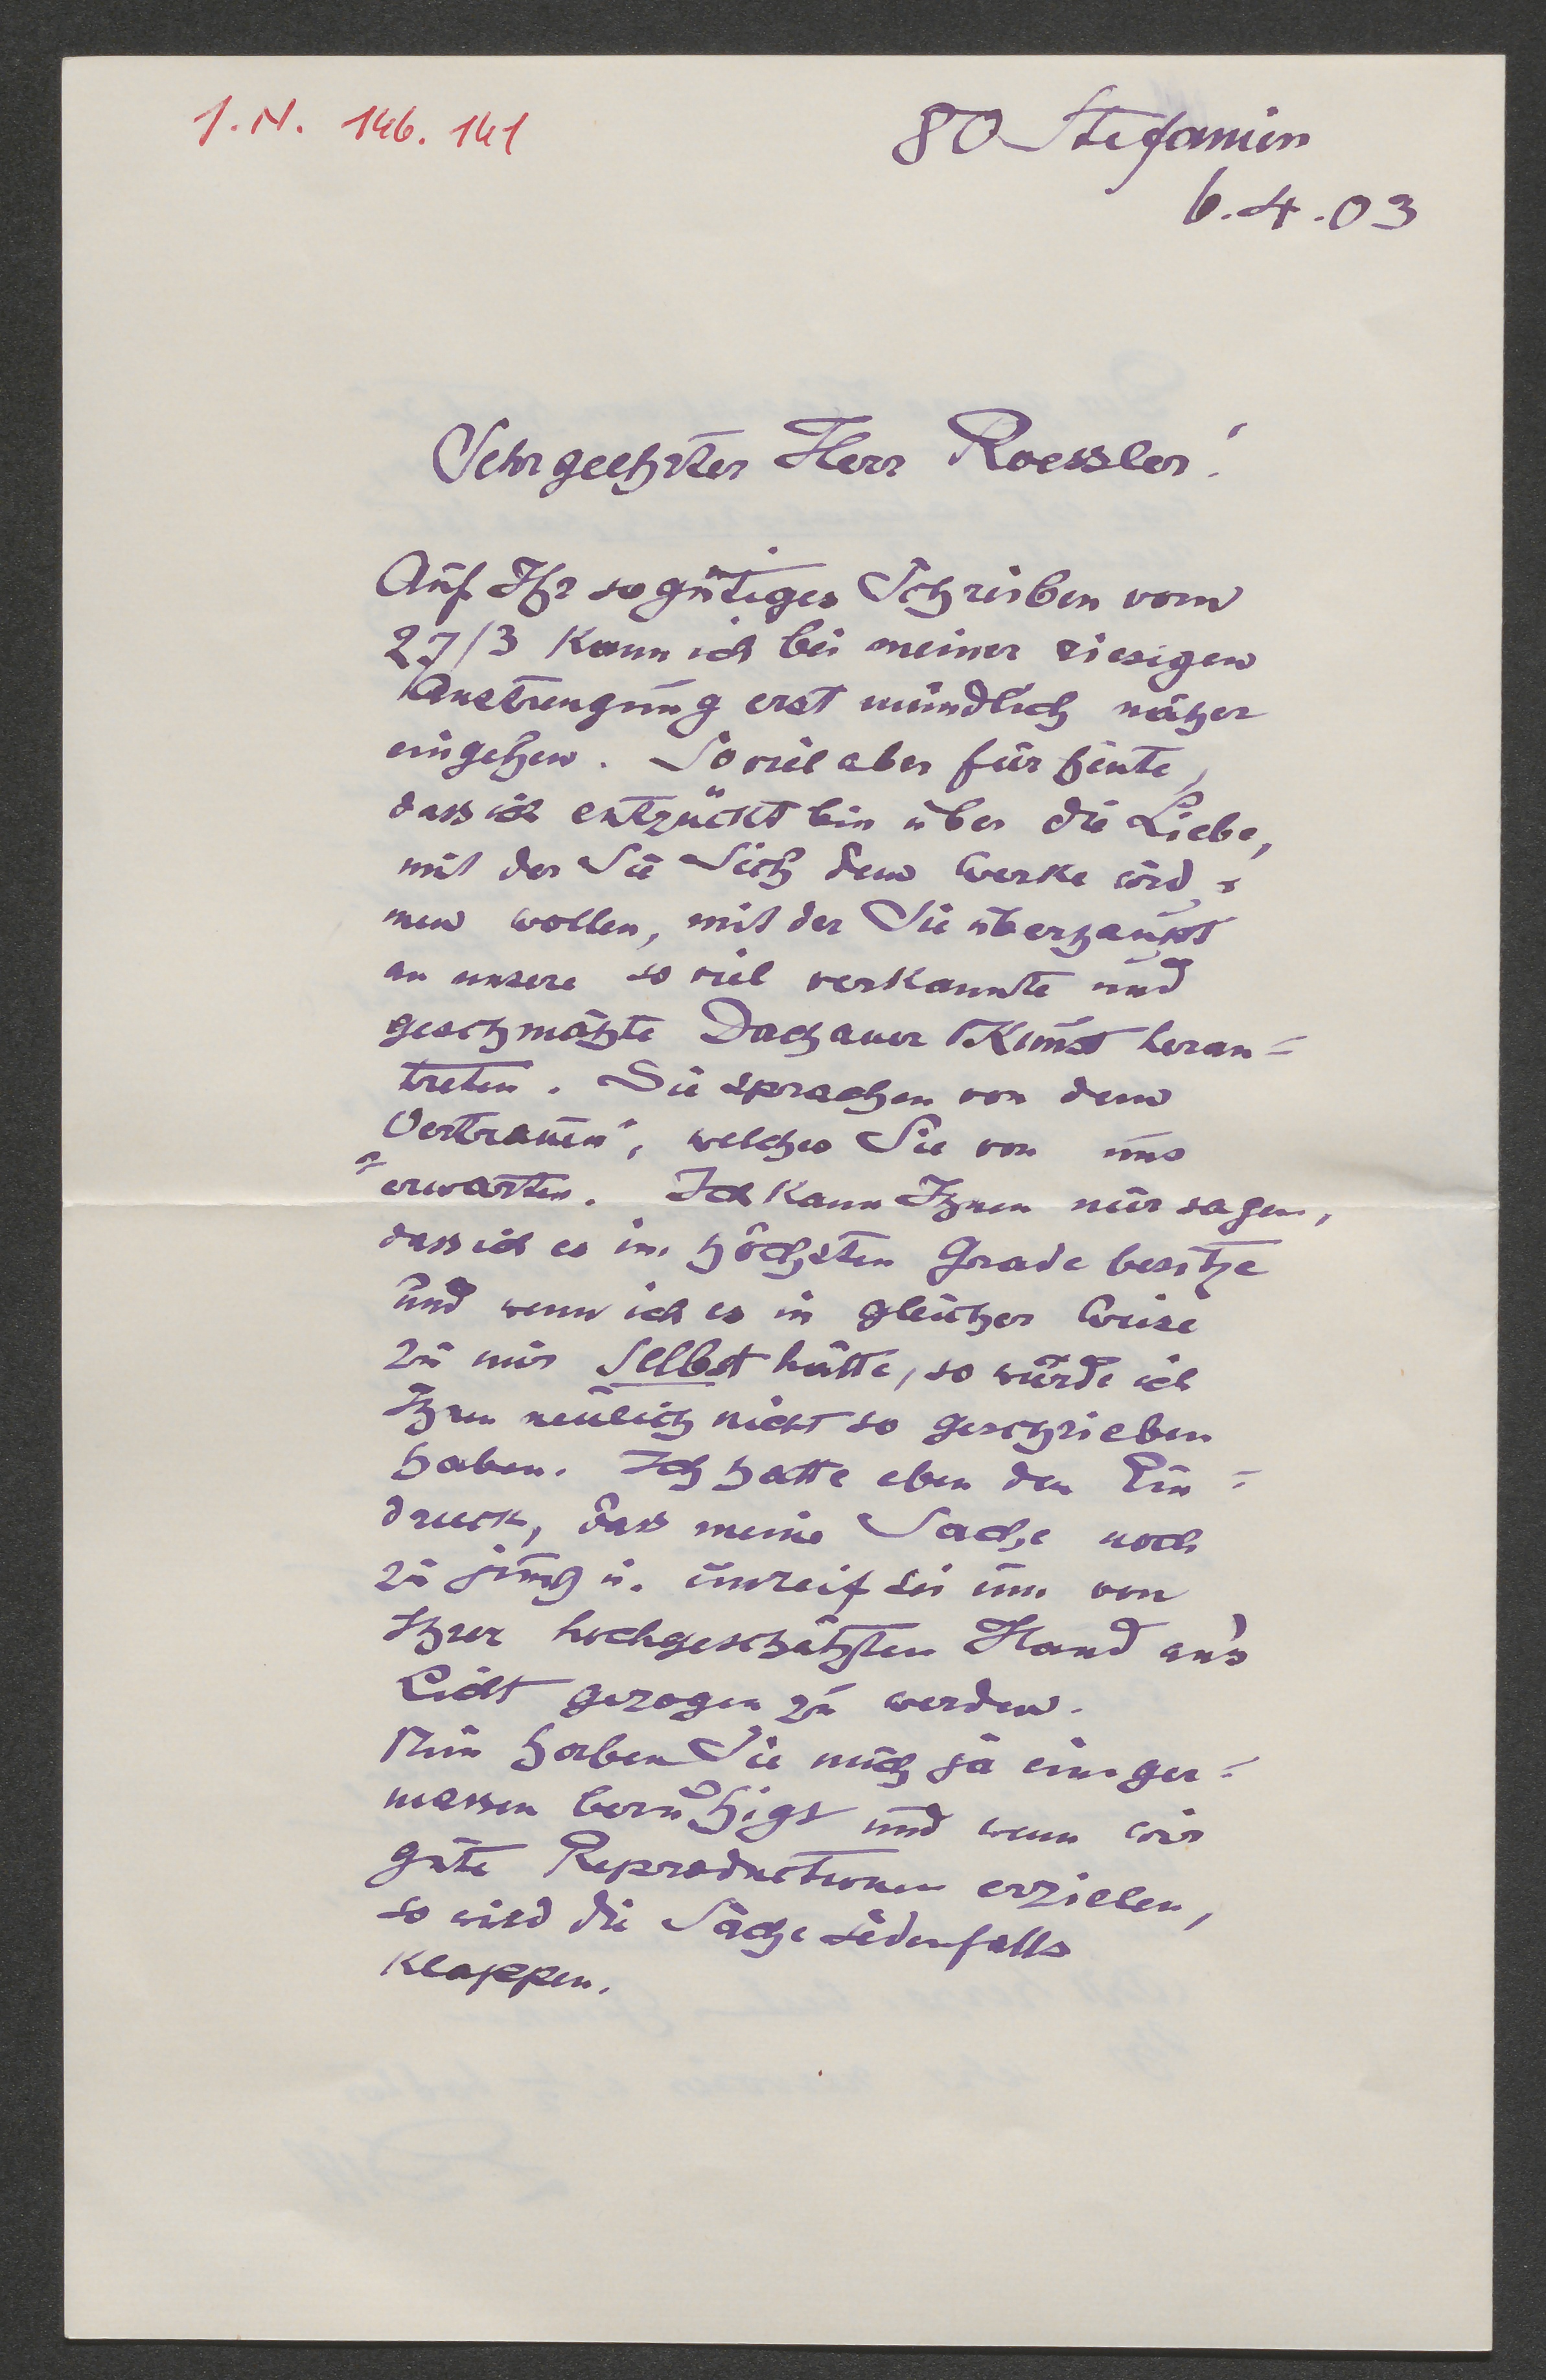 I. N. 146.141
80 Stefanien
6.4.03
Sehrgeehrter Herr Roessler!
Auf Ihr so gütiges Schreiben vom
27/3 kann ich bei meiner riesigen
Anstrengung erst mündlich näher
eingehen. Soviel aber für heute,
dass ich entzückt bin über die Liebe,
mit der Sie Sich dem Werke wid=
men wollen, mit der Sie überhaupt
an unsere so viel verkannte und
geschmähte Dachauer Kunst heran=
treten. Sie sprachen von dem
"Vertrauen", welches Sie von uns
erwarten. Ich kann Ihnen nur sagen,
dass ich es im höchsten Grade besitze
und wenn ich es in gleicher Weise
zu mir selbst hätte, so würde ich
Ihnen neulich nicht so geschrieben
haben. Ich hatte eben den Ein=
druck, dass meine Sache noch
zu jung u. unreif sei um von
Ihrer hochgeschätzten Hand an's
Licht gezogen zu werden.
Nun haben Sie mich ja einiger=
massen beruhigt und wenn wir
gute Reproductionen erzielen,
so wird die Sache jedenfalls
klappen.